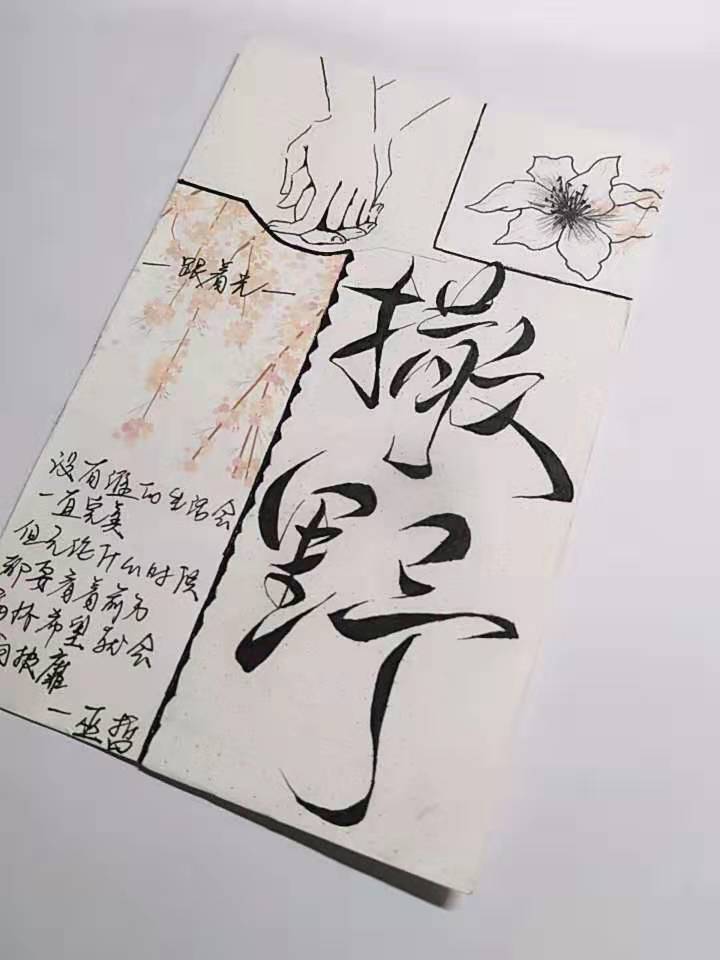 撒野
—跟着光—
没有谁的生活会
一直完美
但无论什么时候
都要看着前方
满怀希望就会
所披靡
—巫哲